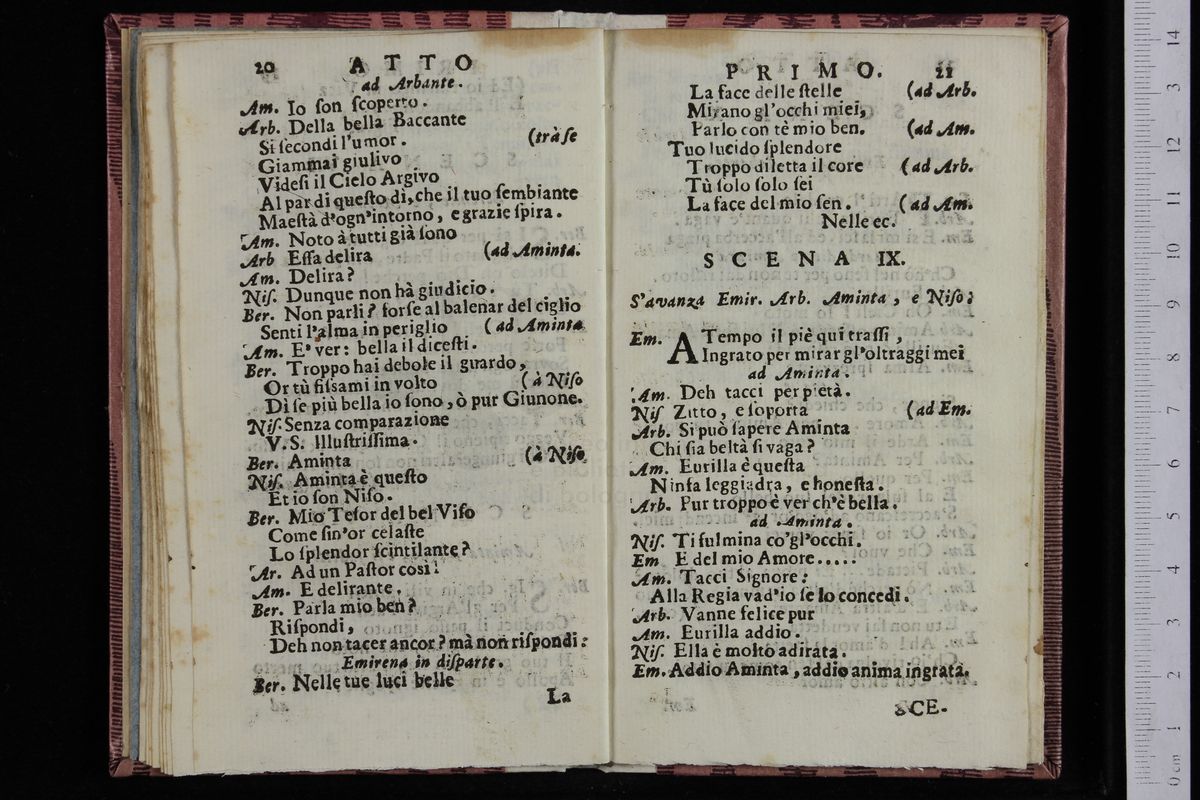 20 ATTO
ad Arbante.
Am. Io ſon ſcoperto.
Arb. Della bella Baccante
Si ſecondi l'umor. (trà ſe
Giammai giulivo
Videſi il Cielo Argivo
Al par di queſto dì, che il tuo ſembiante
Maeſtà d'ogn'intorno, e grazie ſpira.
Am. Noto à tutti già ſono
Arb Eſſa delira (ad Aminta.
Am. Delira?
Niſ. Dunque non hà giudicio.
Ber. Non parli? forſe al balenar del ciglio
Senti l'alma in periglio (ad Aminta
Am. E' ver: bella il diceſti.
Ber. Troppo hai debole il guardo,
Or tù fiſsami in volto (à Niſo
Di ſe più bella io ſono, ò pur Giunone.
Niſ. Senza comparazione
V.S. Illuſtriſſima.
Ber. Aminta (à Niſo
Niſ. Aminta è queſto
Et io ſon Niſo.
Ber. Mio Teſor del bel Viſo
Come ſin'or celaſte
Lo ſplendor ſcintilante?
Ar. Ad un Paſtor così!
Am. E delirante.
Ber. Parla mio ben?
Riſpondi,
Deh non tacer ancor? mà non riſpondi:
Emirena in diſparte.
Ber. Nelle tue luci belle
La
PRIMO. 21
La face delle ſtelle (ad Arb.
Mirano gl'occhi miei,
Parlo con tè mio ben. (ad Am.
Tuo lucido ſplendore
Troppo diletta il core (ad Arb.
Tù ſolo ſolo ſei
La face del mio ſen. (ad Am.
Nelle ec.
SCENA IX.
S'avanza Emir. Arb. Aminta, e Niſo:
Em. A Tempo il piè qui traſſi,
Ingrato per mirar gl'oltraggi mei
ad Aminta.
Am. Deh tacci per pietà.
Niſ Zitto, e ſoporta (ad Em.
Arb. Si può ſapere Aminta
Chi ſia beltà ſi vaga?
Am. Eurilla è queſta
Ninfa leggiadra, e honeſta.
Arb. Pur troppo è ver ch'è bella.
ad Aminta.
Niſ. Ti fulmina co'gl'occhi.
Em E del mio Amore.....
Am. Tacci Signore:
Alla Regia vad'io ſe lo concedi.
Arb. Vanne felice pur
Am. Eurilla addio.
Niſ. Ella è molto adirata.
Em. Addio Aminta, addio anima ingrata.
SCE-